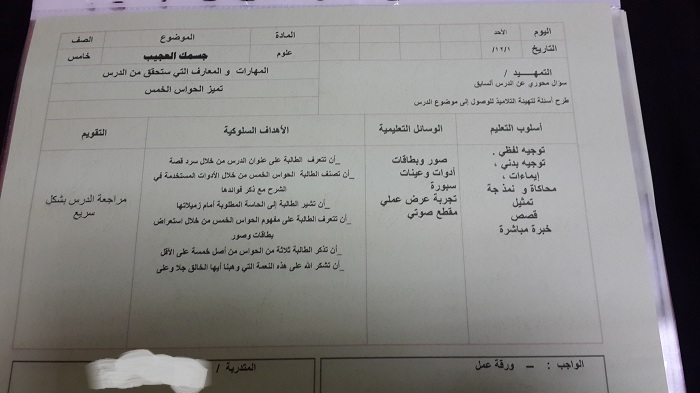 اليوم الأحد المادة الموضوع الصف
التاريخ ١٢/١/ علوم جسمك العجيب خامس
التمهـــيد / المهارات و المعارف التي ستحقق من الدرس
سؤال محوري عن الدرس السابق تميز الحواس الخمس
طرح أسئلة لتهيئة التلاميذ للوصول إلى موضوع الدرس
أسلوب التعليم الوسائل التعليمية الأهداف السلوكية التقويم
توجيه لفظي .
توجيه بدني ،
إيماءات ،
محاكاة و نمذجة
تمثيل
قصص
خبرة مباشرة
صور وبطاقات
أدوات وعينات
سبورة
تجربة عرض عملي
مقطع صوتي
_أن تتعرف الطالبة على عنوان الدرس من خلال سرد قصة
_أن تصنف الطالبة الحواس الخمس من خلال الأدوات المستخدمة في
الشرح مع ذكر فوائدها
_أن تشير الطالبة إلى الحاسة المطلوبة أمام زميلاتها
_أن تتعرف الطالبة على مفهوم الحواس الخمس من خلال استعراض
بطاقات وصور
_أن تذكر الطالبة ثلاثة من الحواس من أصل خمسة على الأقل
_أن تشكر الله على هذه النعمة التي وهبنا أيها الخالق جلا وعلى
مراجعة الدرس بشكل
سريع
الواجب : – ورقة عمل المتدربة /